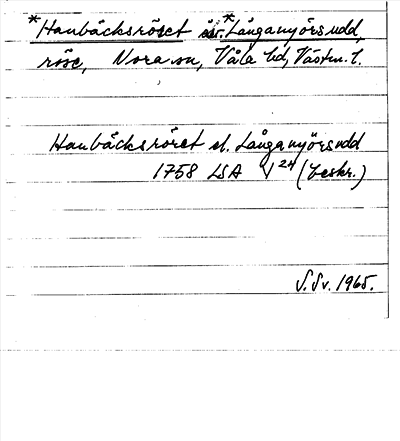 *Hanbäcksröset *Långanyörsudd,
röse, Nora sn, Våla hd, Västm. l.
Hanbäcksröset el. Långanyörsudd
1758 LSA V 24 (beskr.)
S.Sv. 1965.